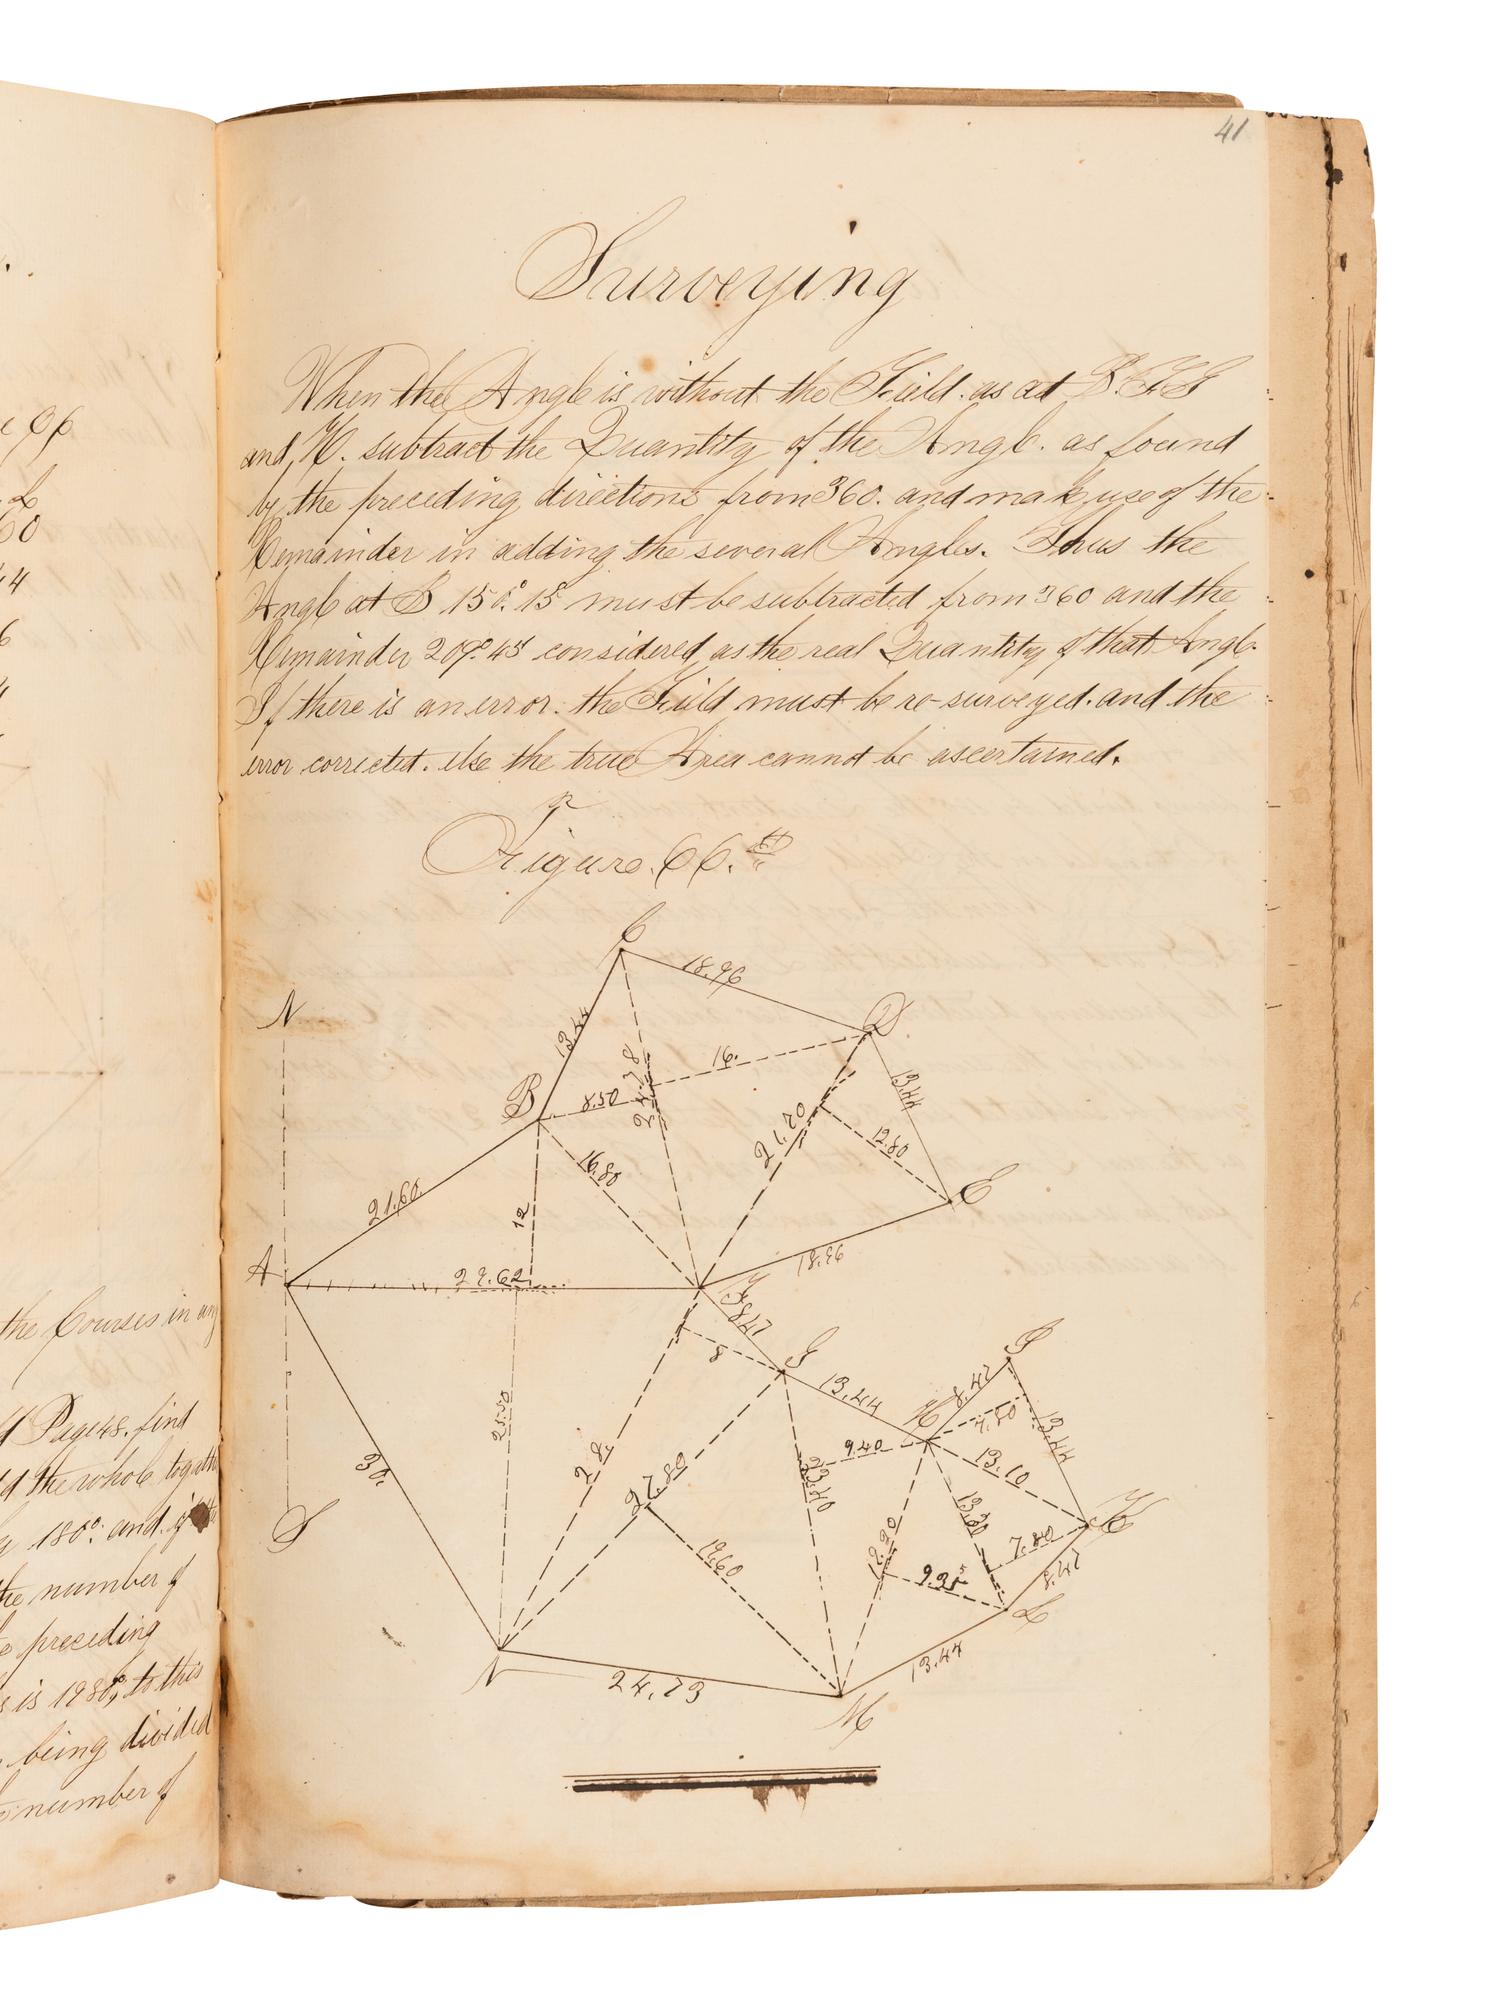 41
Surveying
When the Angle is without the Field. as at B. F. G
and H. subtract the Quantity of the Angle. as found
by the preceding directions from 360. and make use of the
Remainder in adding the several Angles. Thus the
Angle at B 150°. 15' must be subtracted from 360 and the
Remainder 209°. 45' considered as the real Quantity of that Angle.
If there is an error. the Field must be re-surveyed. and the
error corrected. else the true Area cannot be ascertained.
Figure. 66.th
C
18.96
D
N
13.44
16.
B
8.50
24.78
13.44
21.70
12.80
16.80
E
21.60
12
18.96
A
29.62
F
8.47
8
G
I
13.44
8.47
H
7.20
13.44
25.50
9.40
13.10
30.
28.
27.80
23.40
K
S
13.30
7.80
19.60
12.20
8.47
L
13.44
N
24.73
M
L
60
44
6
the Courses in any
Page 48. find
the whole together
180°. and if
the number of
preceding
is 1980°, to this
being divided
number of